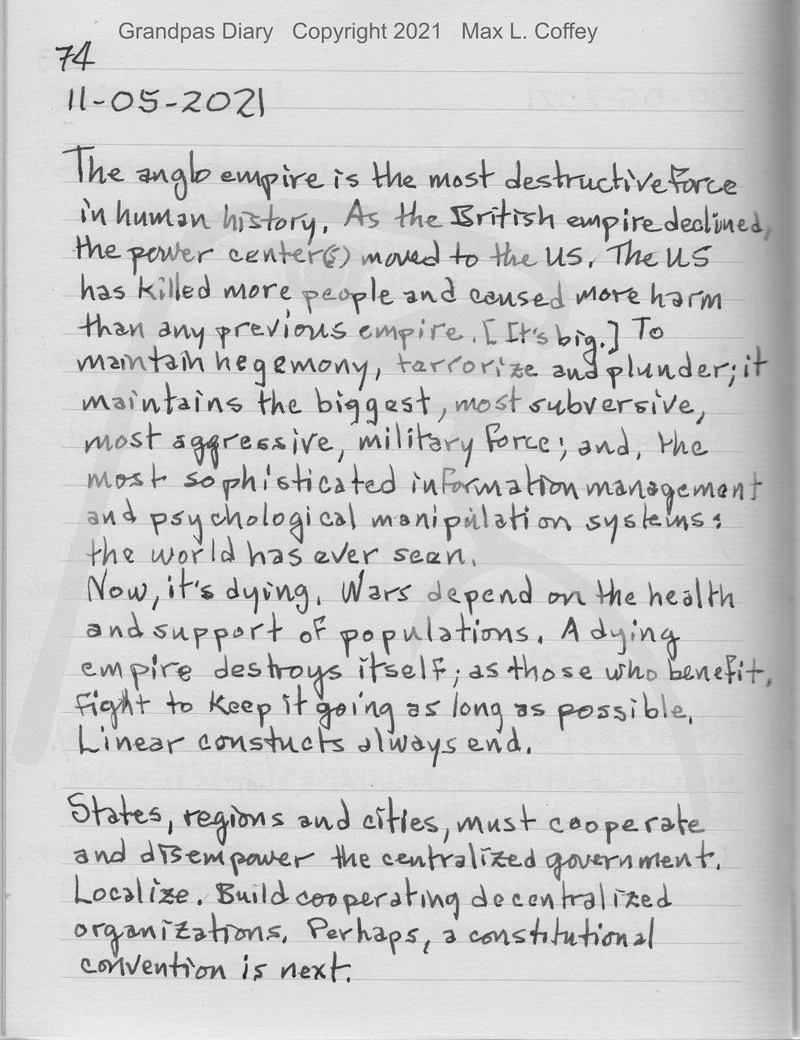 Grandpas Diary Copyright 2021 Max L. Coffey
74
11-05-2021
The anglo empire is the most destructive force
in human history. As the British empire declined,
the power center(s) moved to the US. The US
has killed more people and caused more harm
than any previous empire. [It's big.] To
maintain hegemony, tarrorize and plunder; it
maintains the biggest, most subversive,
most aggressive, military force; and, the
most sophisticated information management
and psychological manipulation systems:
the world has ever seen.
Now, it's dying. Wars depend on the health
and support of populations. A dying
empire destroys itself; as those who benefit,
fight to keep it going as long as possible.
Linear constucts always end.
States, regions and cities, must cooperate
and disempower the centralized government.
Localize. Build cooperating decentralized
organizations. Perhaps, a constitutional
convention is next.